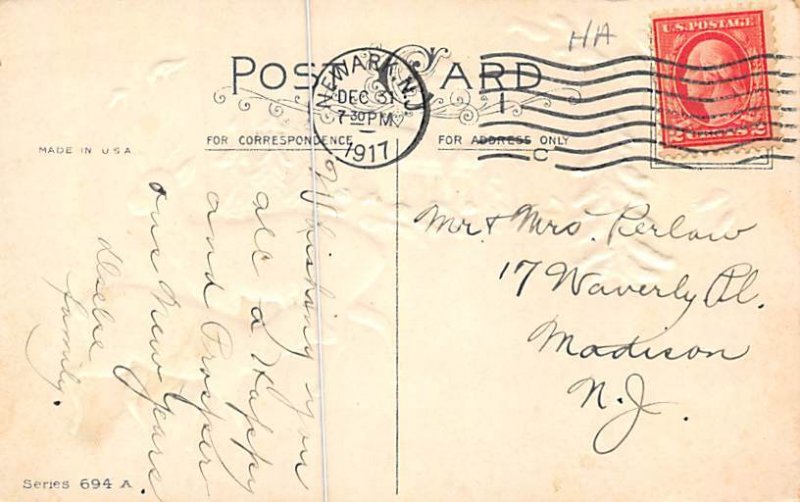 HA
U.S. POSTAGE
POST CARD
NEWARK, N.J.
DEC 31
7 30 PM
1917
1
C
2 CENTS 2
FOR CORRESPONDENCE
FOR ADDRESS ONLY
MADE IN U.S.A.
Wishing you
all a Happy
and Prosper
ous New Years
family.
Mr & Mrs. Perlaw
17 Waverly Pl.
Madison
N.J.
Series 694 A.